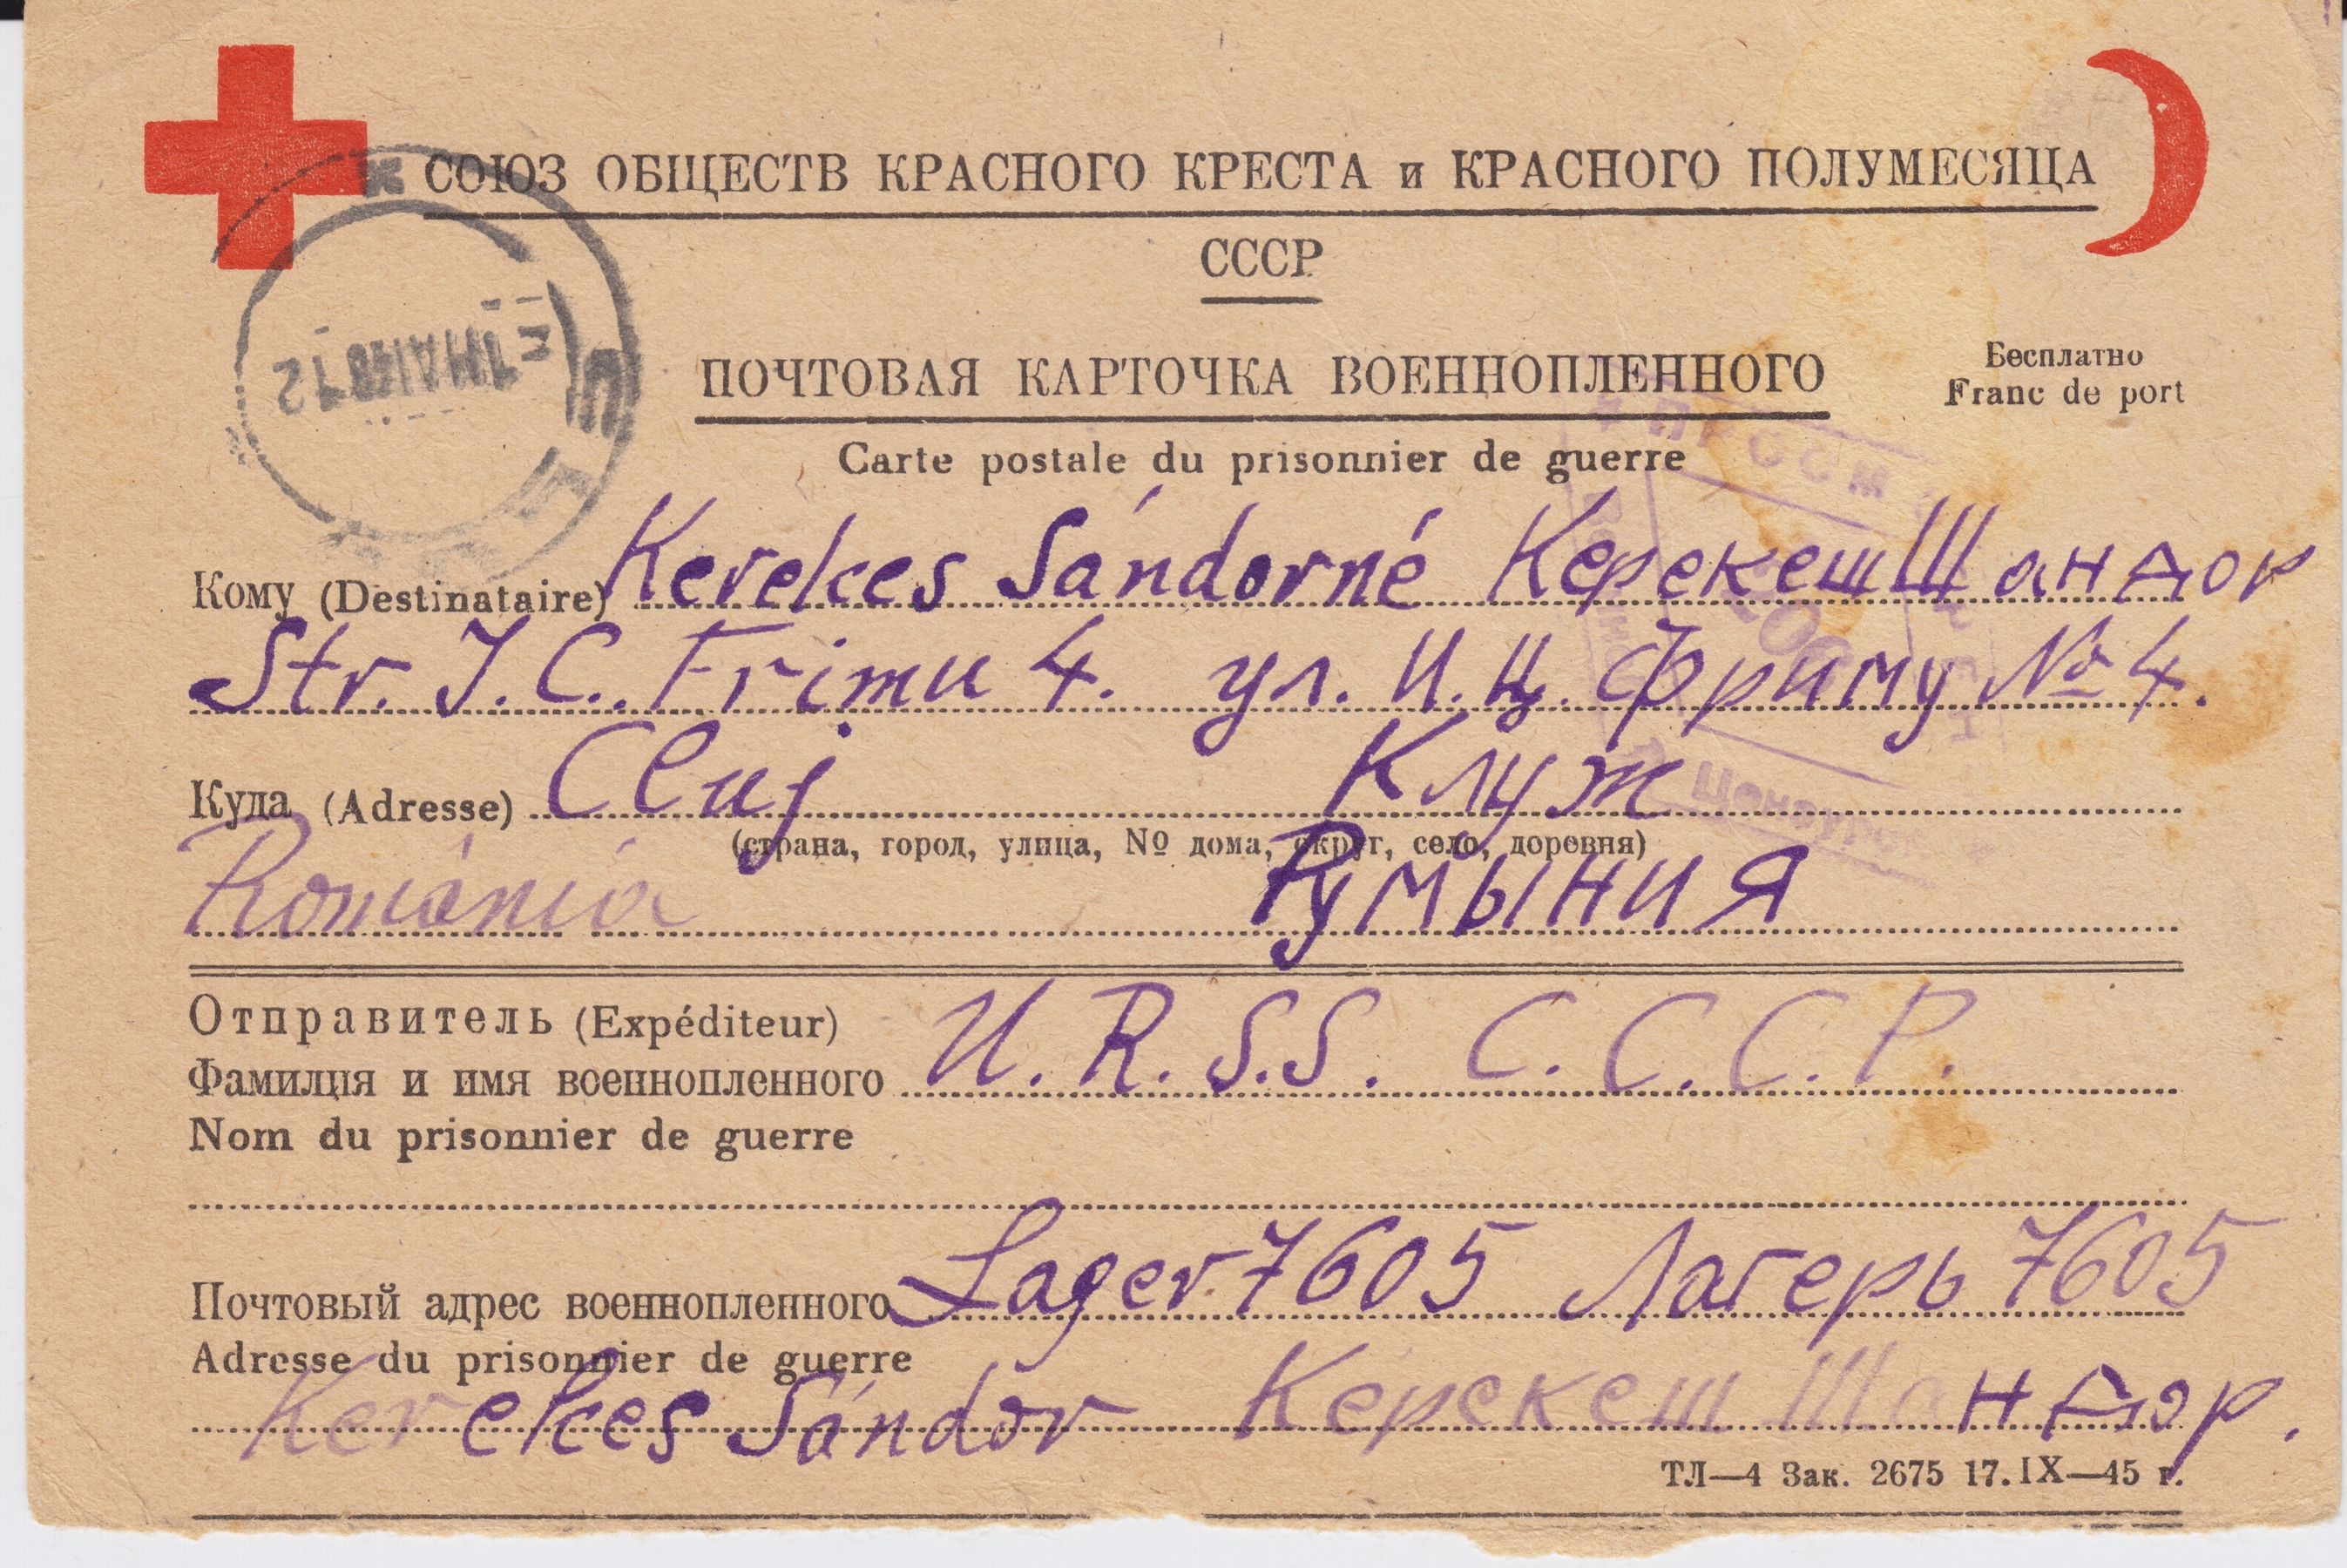 СОЮЗ ОБЩЕСТВ КРАСНОГО КРЕСТА и КРАСНОГО ПОЛУМЕСЯЦА
СССР
ПОЧТОВАЯ КАРТОЧКА ВОЕННОПЛЕННОГО
Бесплатно
Franc de port
Carte postale du prisonnier de guerre
Кому (Destinataire) Kerekes Sándorné Керекеш Шандор
Str. J. C. Frimu 4. ул. И. Ц. Фриму № 4.
Куда (Adresse) Cluj Клуж
(страна, город, улица, № дома, округ, село, деревня)
Románia Румыния
Отправитель (Expéditeur)
Фамилия и имя военнопленного U. R. S. S. С. С. С. Р.
Nom du prisonnier de guerre
Почтовый адрес военнопленного Lager 7605 Лагерь 7605
Adresse du prisonnier de guerre
Kerekes Sándor Керекеш Шандор.
ТЛ—4 Зак. 2675 17.IX—45 г.